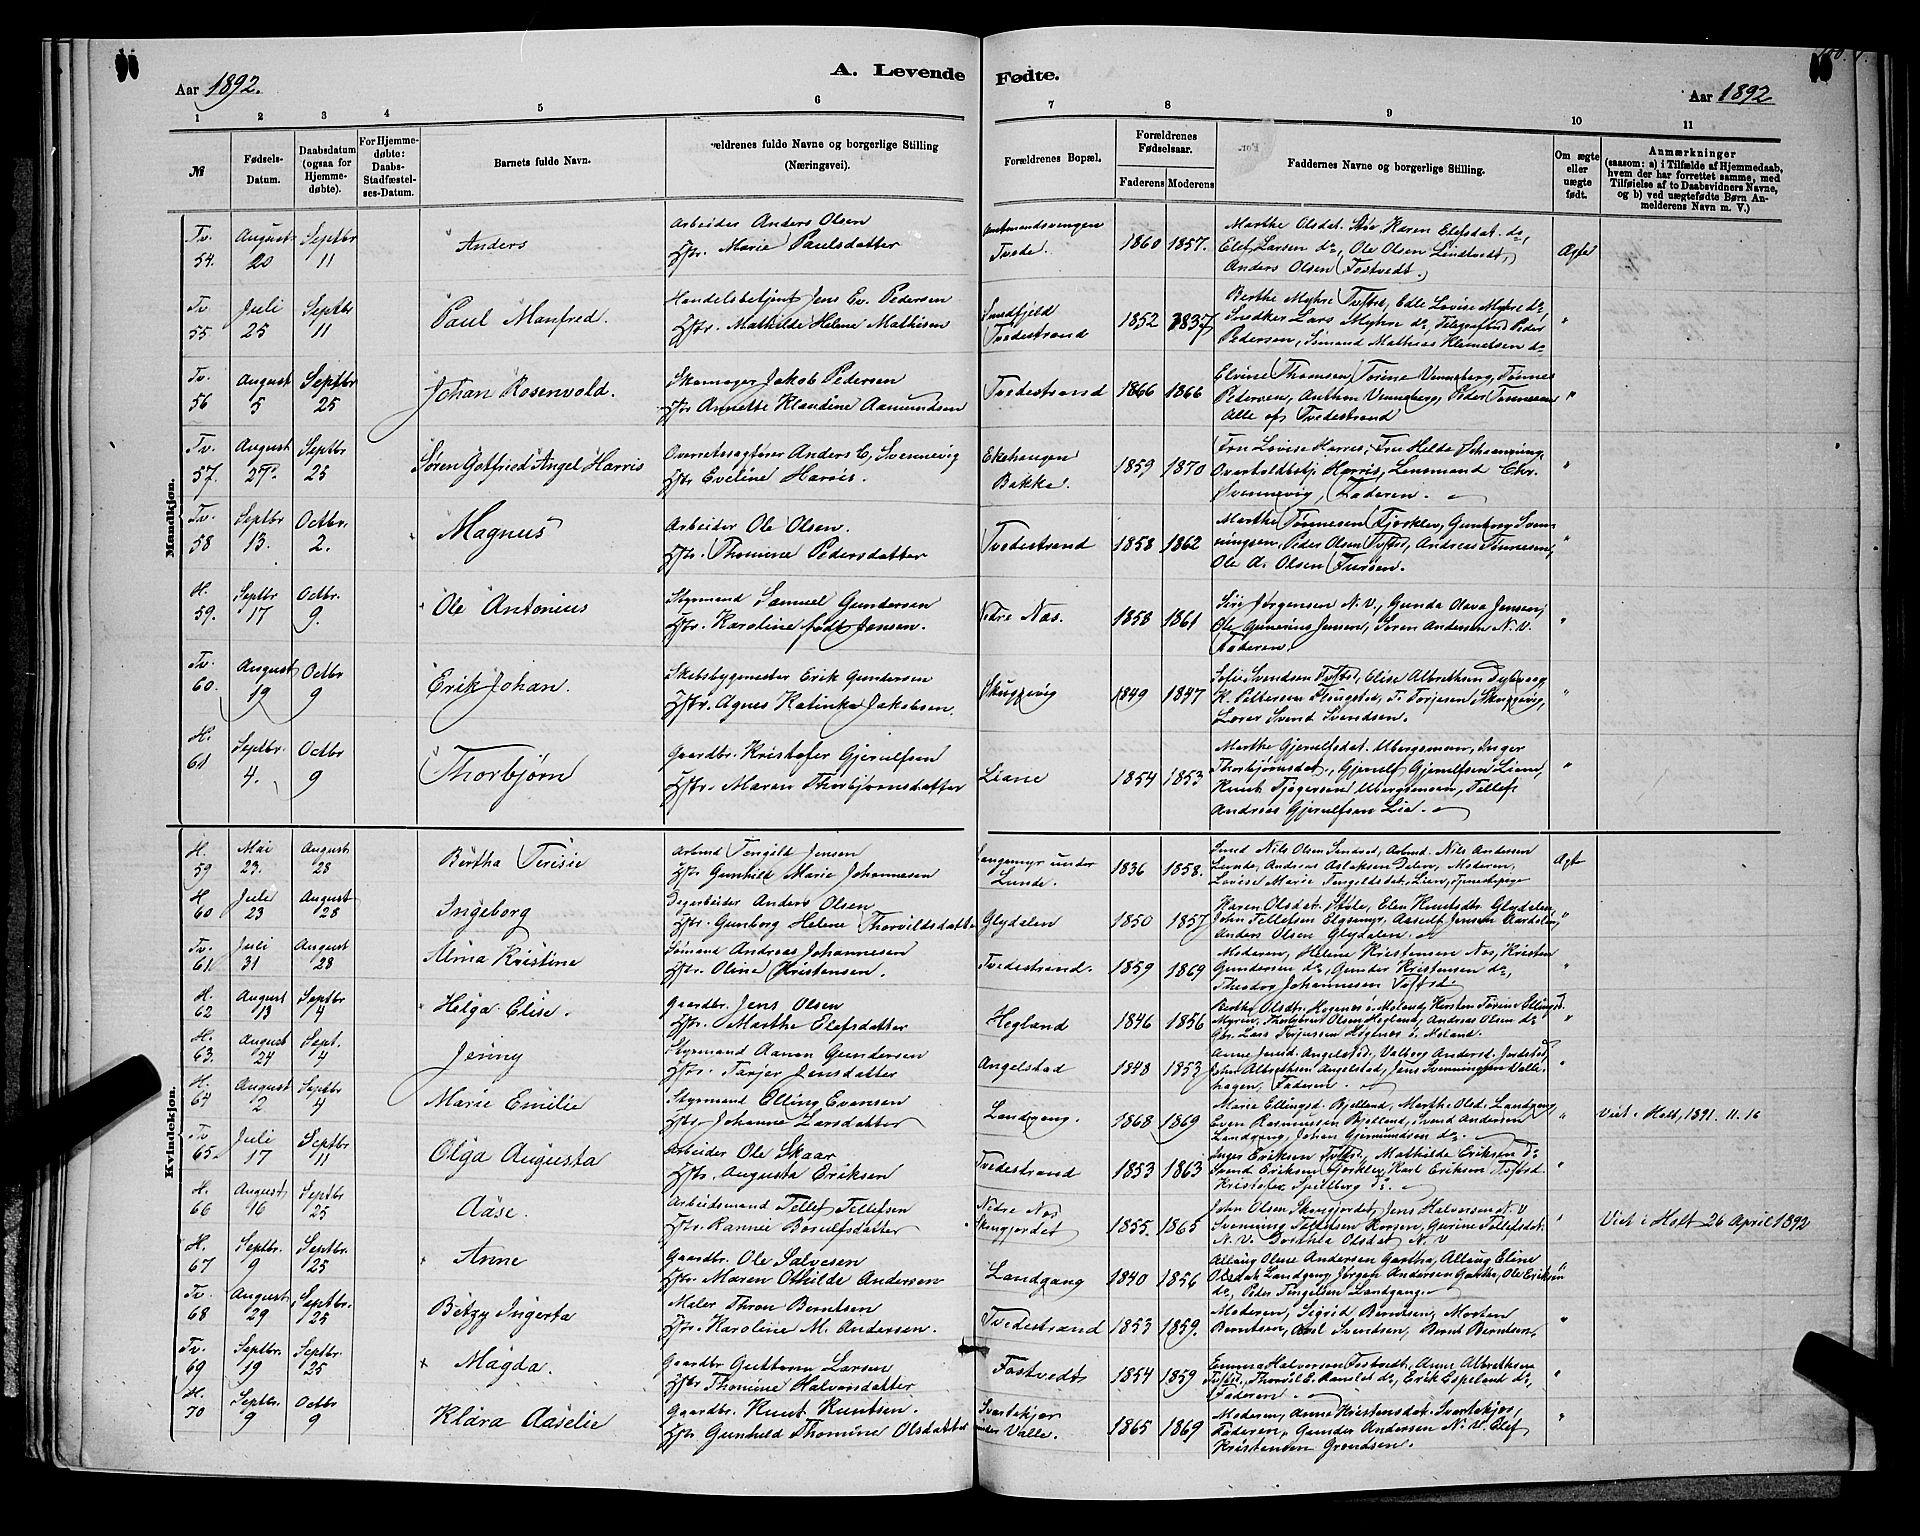 Aar 1892. A. Levende Fødte. Aar 1892
1 2 3 4 5 6 7 8 9 10 11
№ Fødsels-Datum. Daabsdatum (ogsaa for Hjemmedøbte). For Hjemmedøbte: Daabs-Stadfæstelses-Datum. Barnets fulde Navn. ældrenes fulde Navne og borgerlige Stilling (Næringsvei). Forældrenes Bopæl. Forældrenes Fødselsaar. Faderens Moderens Faddernes Navne og borgerlige Stilling. Om ægte eller uægte født. Anmærkninger (saasom: a) i Tilfælde af Hjemmedaab, hvem der har forrettet samme, med Tilføielse af to Daabsvidners Navne, og b) ved uægtefødte Børn Anmelderens Navn m. V.)
Mandkjøn.
Tv. 54. August 20 Septbr 11 Anders
Arbeider Anders Olsen
Hstr. Marie Paulsdatter
Amtmandsvingen Tvede. 1860 1857.
Marthe Olsdat. Støe, Karen Elefsdat. do,
Elef Larsen do, Ole Olsen Lindtvedt,
Anders Olsen Fostvedt.
Ægte
Tv 55 Juli 25 Septbr 11 Paul Manfred.
Handelsbetjent Jens Ev. Pedersen
Hstr. Mathilde Helene Mathisen
Sandfjeld Tvedestrand 1852 1837
Berthe Myhre Tvstrd, Edle Lovise Myhre do,
Snedker Lars Myhre do, Telegrafbud Peder
Pedersen, Sømand Mathias Klemetsen do
"
Tv. 56 August 5 Septbr 25 Johan Rosenvold.
Skomager Jakob Pedersen
Hstr Annette Klaudine Aamundsen
Tvedestrand 1866 1866
Elvine Thomsen, Torine Venneberg, Tønnes
Pedersen, Anthon Venneberg, Peder Tønnesen
Alle af Tvedestrand
"
Tv. 57. August 27. Septbr 25 Søren Gotfried Angel Harris
Overretssagfører Anders C. Svennevig
Hstr Eveline Harris
Ekehaugen Bakke. 1859 1870
Fru Lovise Harris, Fru Helda Schanning,
Overtoldbetj. Harris, Lensmand Chr.
Svennevig, Faderen.
"
Tv. 58 Septbr 13. Octbr. 2. Magnus
Arbeider Ole Olsen.
Hstr. Thomine Pedersdatter
Tvedestrand 1858 1862
Marthe Tønnesen Fjorklev, Gunborg Svenningsen,
Peder Olsen Tvstrd, Andreas Tønnesen,
Ole A. Olsen Fursen.
"
H. 59. Septbr 17 Octbr. 9. Ole Antonius
Styrmand Samuel Gundersen
Hstr. Karoline født Jensen.
Nedre Nas. 1858 1861
Siri Jørgensen N.V., Gunda Olava Jensen,
Ole Gunerius Jensen, Søren Andersen N.V.
Faderen.
"
Tv. 60. August 19 Octbr 9 Erik Johan.
Skibsbygmester Erik Gundersen
Hstr. Agnes Katinka Jakobsen.
Skuggevig 1849 1847
Sofie Svendsen Tvstrd, Elise Albrethsen Dybvaag
K. Pettersen Skugstad, T. Torjesen Skuggevig,
Lærer Svend Svendsen.
"
H. 61 Septbr. 4. Octbr 9 Thorbjørn
Gaardbr. Kristofer Gjerulfsen
Hstr. Maren Thorbjørnsdatter
Liane 1854 1853
Marthe Gjerulfsdat. Ubergsmoen, Inger
Thorbjørnsdat., Gjerulf Gjerulfsen Liane,
Knut Tjøgersen Ubergsmoen, Tellef
Andreas Gjerulfsen Lia.
"
Kvindekjøn.
H. 59 Mai 23. August 28 Bertha Terisie
Arbmd Tengild Jensen
Hstr. Gunhild Marie Johannesen
Langemyr under Lunde. 1836 1858.
Smed Nils Olsen Sandvad, Arbmd. Nils Andersen
Lunde, Andreas Aslaksen Dalen, Moderen,
Lovise Marie Tengildsdat. Lien, Tjenestepige
Ægt
H 60 Juli 23 August 28 Ingeborg
Dagarbeider Anders Olsen
Hstr. Gunborg Helene Thorvildsdatter
Glydalen 1850 1857
Karen Olsdat. Støle, Elen Knutsdtr. Glydalen,
John Tellefsen Elgsmyr, Aasulf Jensen
Anders Olsen Glydalen.
"
Tv. 61 Juli 31 August 28 Alma Kristine
Sømand Andreas Johannesen
Hstr. Oline Kristensen.
Tvedestrand. 1859 1869
Moderen, Helene Kristensen Nas, Kristen
Gundersen do, Gunder Kristensen do,
Theodor Johannesen Tvstrd.
"
H. 62 August 13 Septbr 4 Helga Elise.
Gaardbr. Jens Olsen
Hstr. Marthe Elefsdatter
Hegland 1846 1856
Berthe Olsdtr. Hognes i Moland, Kirsten Torine Ellingsd.
Myren, Thorbjørn Olsen Hegland, Andreas Olsen do
Gbr. Lars Torjussen Hognes i Moland.
"
H. 63. August 24 Sept. 4 Jenny
Styrmand Aanon Gundersen
Hstr. Tarjer Jensdatter
Angelstad 1848 1853
Anne Jensd. Angelstad, Valborg Andersd. Jordstad,
John Albrethsen Angelstad, Jens Svenningsen Vallehagen,
Faderen.
"
H. 64 August 2 Septbr 4 Marie Emilie
Styrmand Elling Evensen
Hstr. Johanne Larsdatter
Landgang. 1868 1869
Marie Ellingsd. Bjelland, Marthe Olsd. Landgang
Even Rasmussen Bjelland, Svend Andersen
Landgang, Johan Gjermundsen do.
" Viet i Holt, 1891. 11. 16
Tv 65. Juli 17 Septbr 11 Olga Augusta
Arbeider Ole Skaar
Hstr. Augusta Eriksen
Tvedestrand 1853 1863
Inger Eriksen Tvstrd, Mathilde Eriksen do
Svend Eriksen Fjorklev, Karl Eriksen Tvstrd
Kristofer Spilberg do.
"
H. 66 August 16 Septbr 25 Aase.
Arbeidsmand Tellef Tellefsen
Hstr. Rannei Bosulfsdatter
Nedre Nas Skougjordet 1855. 1865
John Olsen Skougjordet, Jens Halvorsen N.V
Svenning Tellefsen Korsen, Gurine Tellefsdat.
N.V. Dorthea Olsdat N.V
" Viet i Holt 26 April 1892
H. 67 Septbr. 9 Septbr. 25 Anne
Gaardbr. Ole Salvesen
Hstr. Maren Othilde Andersen
Landgang 1840 1856
Allaug Oline Andersen Gartha, Allaug Eline
Olsdat. Landgang, Jørgen Andersen Gartha, Ole Eriksen
do, Peder Tengelsen Landgang
"
Tv. 68 August 29 Septbr. 25 Betzy Ingerta
Maler Thron Berntsen
Hstr. Karoline M. Andersen.
Tvedestrand 1853 1859.
Moderen, Sigrid Berntsen, Morten
Berntsen, Axel Svendsen, Bernt Berntsen,
"
Tv. 69 Septbr. 19 Septbr. 25 Magda.
Gaardbr Guttorm Larsen
Hstr Thomine Halvorsdatter
Fostvedt 1854 1859
Emma Halvorsen Fostvedt, Anne Albrethsen
Tvstrd, Thorvol E. Ramslet do, Erik Espeland do,
Faderen.
"
H. 70 Septbr. 9 Octbr 9 Klara Aaselie
Gaardbr. Knut Knutsen.
Hstr Gunhild Thomine Olsdatter
Svartekjær under Valle. 1865 1869
Moderen, Anne Kristensdat. Svartekjær,
Faderen, Gunder Andersen N.V. Elef
Kristensen Grendsen.
"